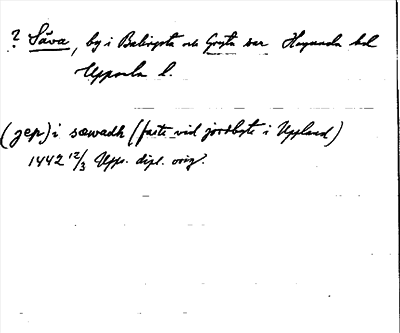 ? Säva, by i Balingsta och Gryta snr Hagunda hd
Uppsala l.
(jep) i sæwadh (faste vid jordbyte i Uppland)
1442 12/3 Upps. dipl. orig.